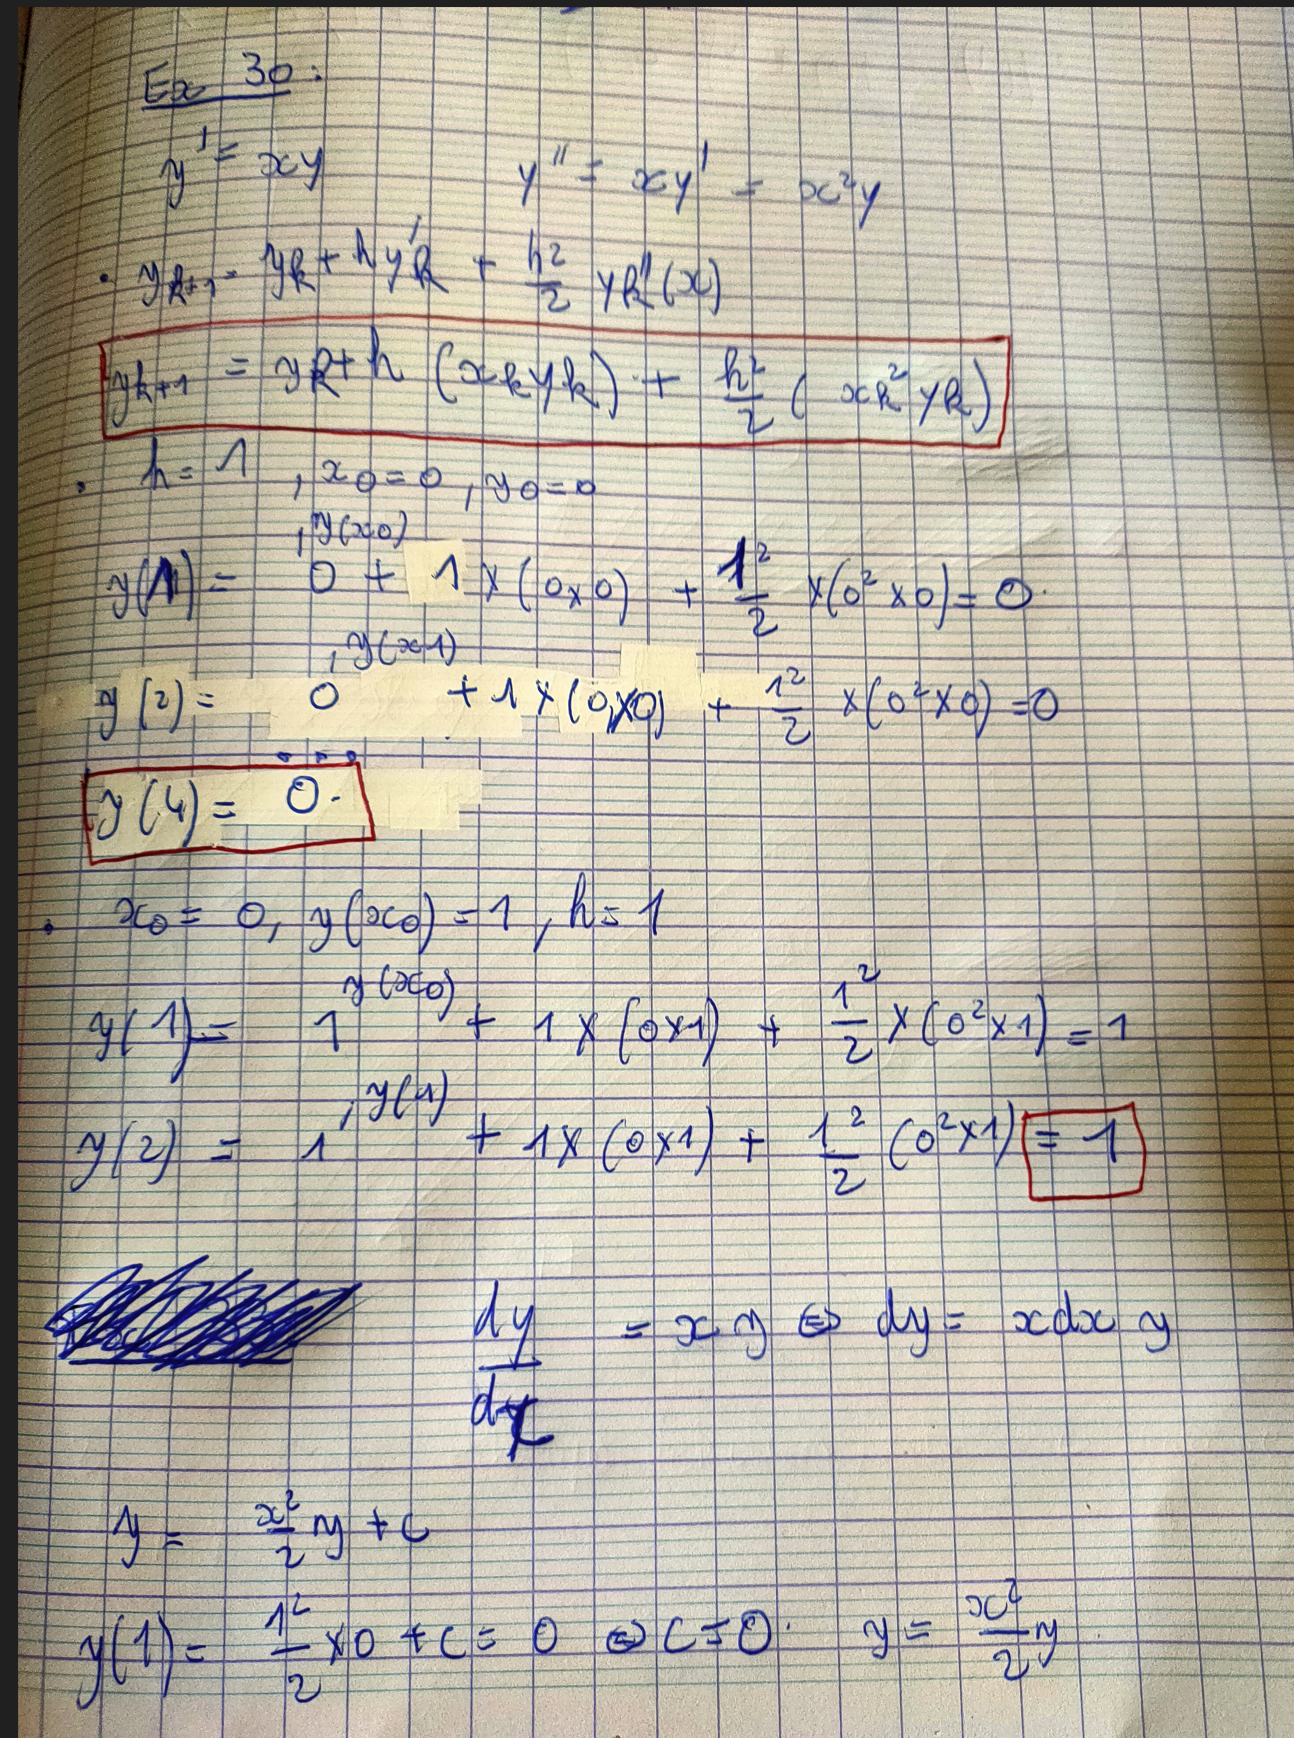 Ex 30:
y' = xy y'' = xy' = x²y
• yk+1 = yk + h y'k + h²/2 yk''(x)
yk+1 = yk + h (xk yk) + h²/2 (xk² yk)
• h = 1, x0 = 0, y0 = 0
, y(x0)
y(1) = 0 + 1 × (0×0) + 1²/2 × (0² × 0) = 0.
, y(x1)
y(2) = 0 + 1 × (0×0) + 1²/2 × (0² × 0) = 0
...
y(4) = 0.
• x0 = 0, y(x0) = 1, h = 1
y(x0)
y(1) = 1 + 1 × (0×1) + 1²/2 × (0² × 1) = 1
, y(1)
y(2) = 1 + 1× (0×1) + 1²/2 (0² × 1) = 1
dy/dx = xy ⇔ dy = xdx y
y = x²/2 y + c
y(1) = 1²/2 × 0 + c = 0 ⇔ c = 0. y = x²/2 y